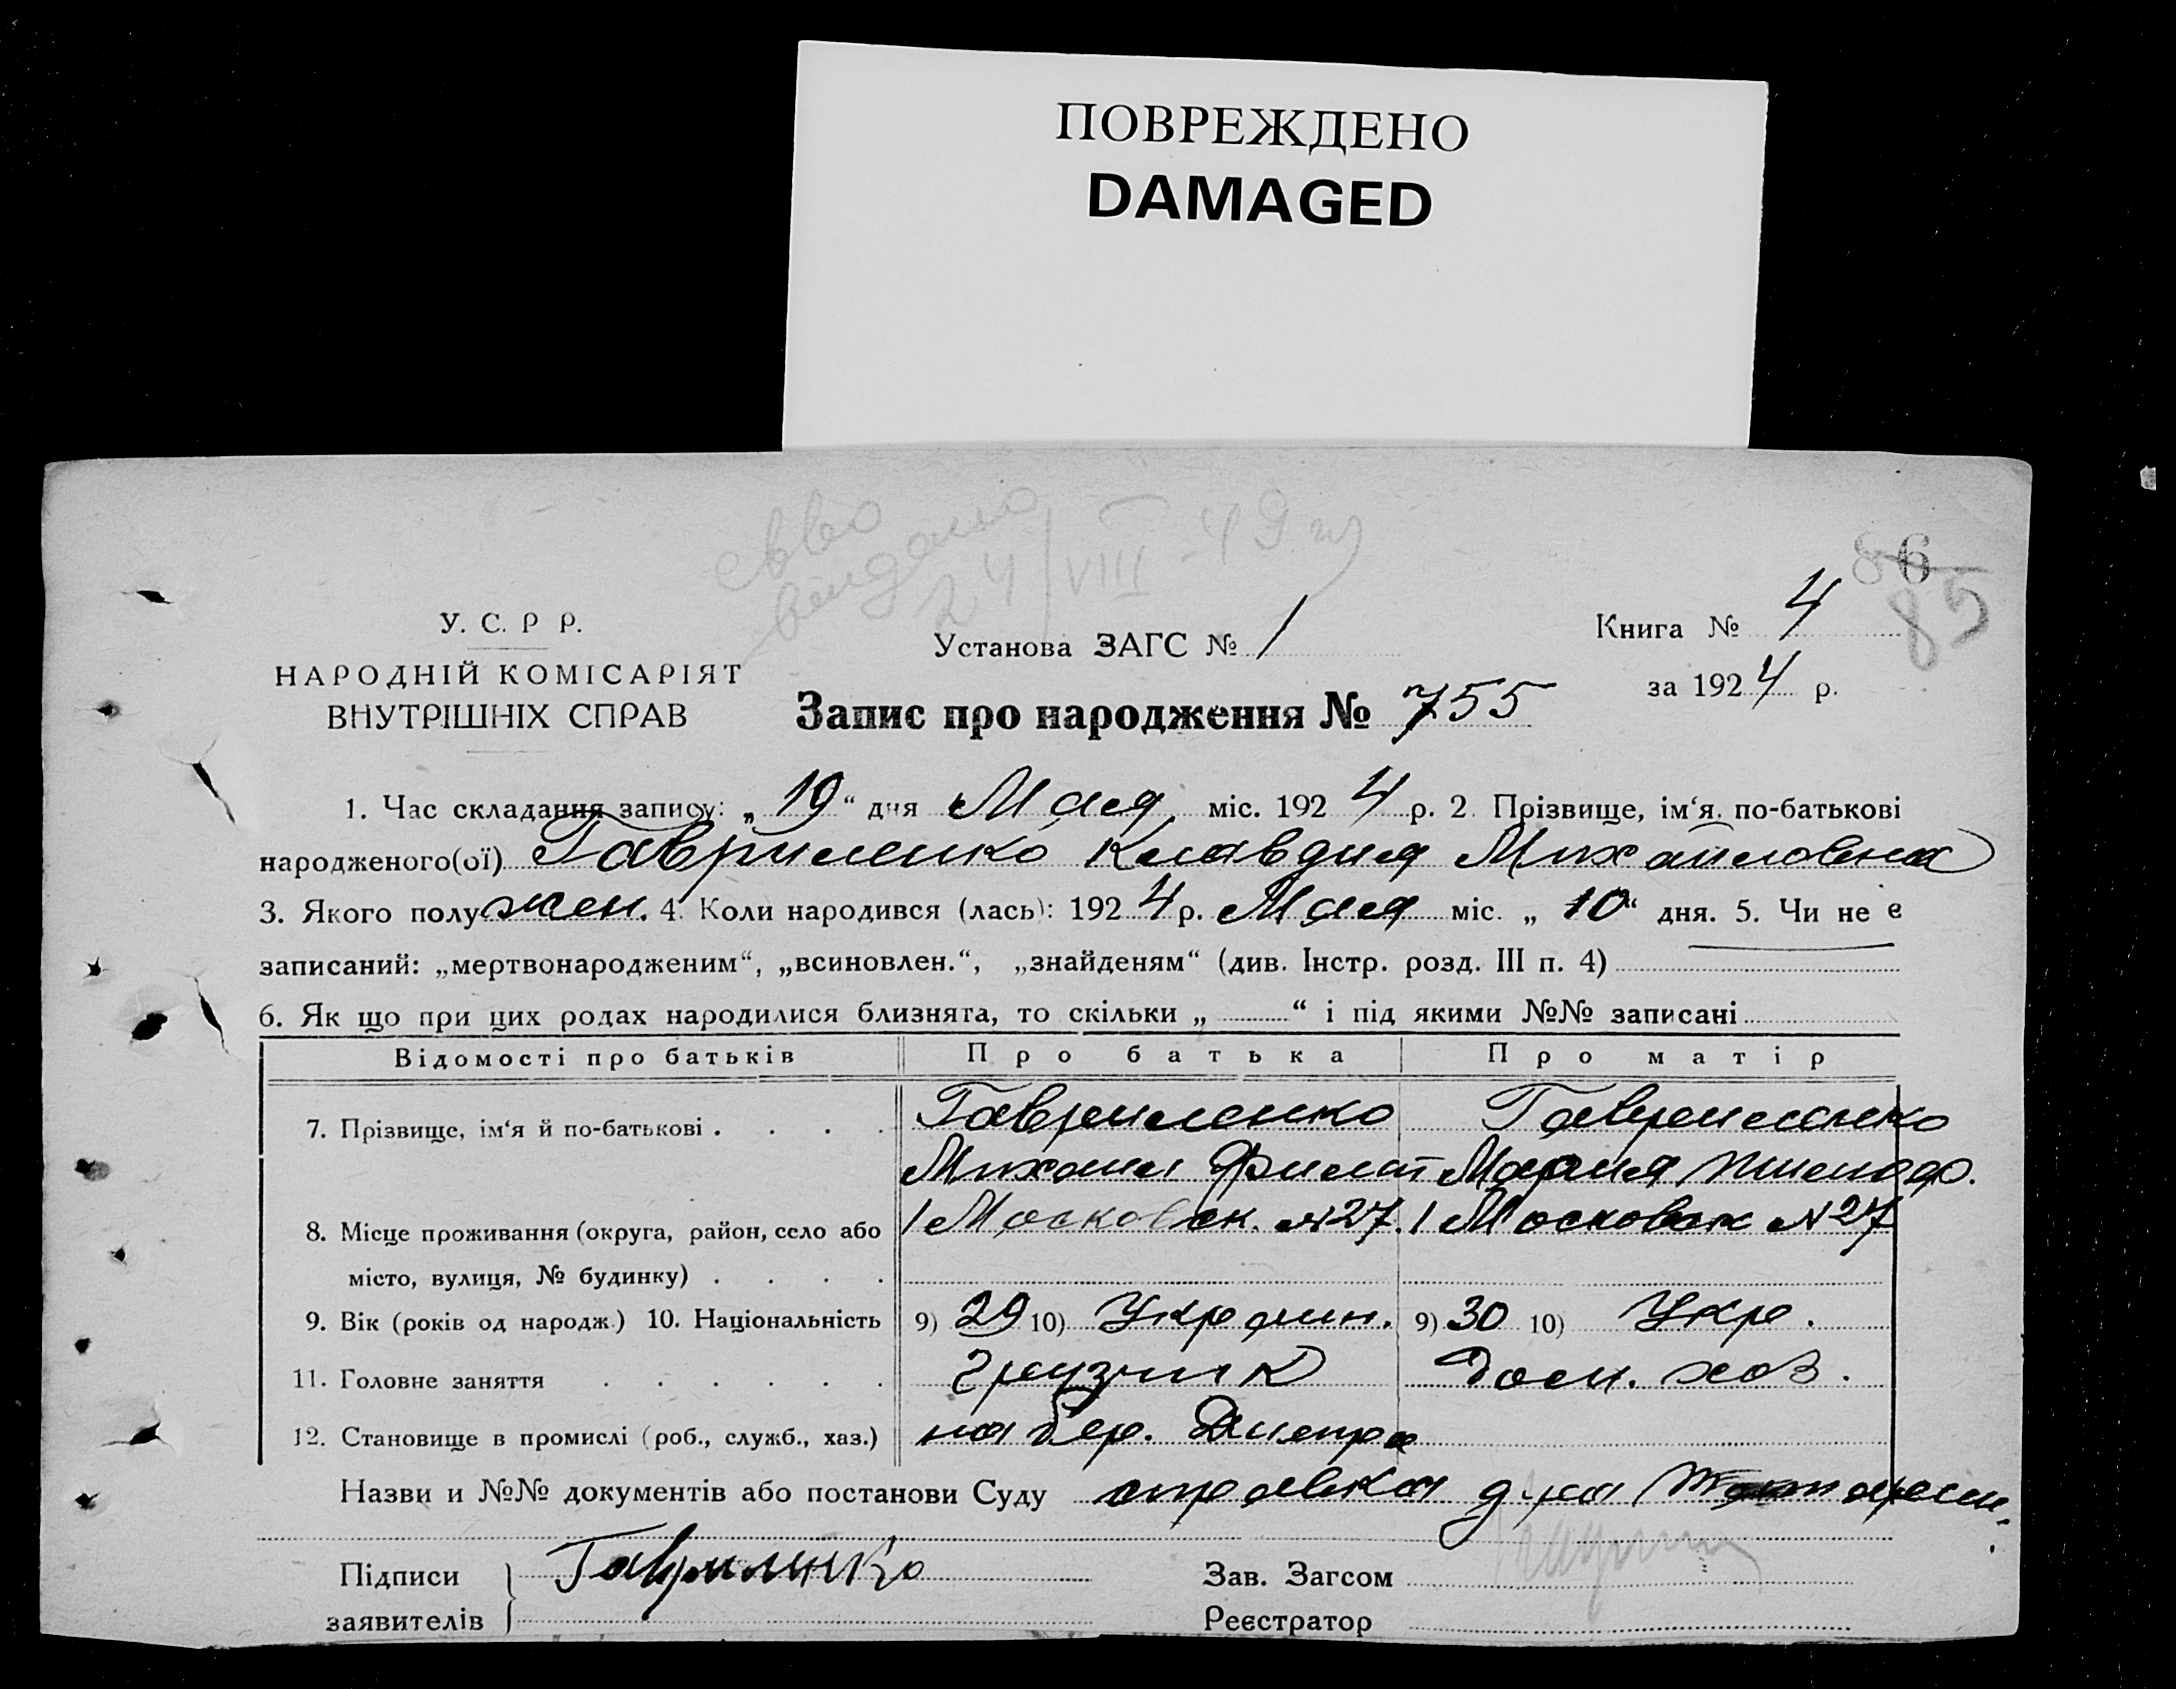 ПОВРЕЖДЕНО
DAMAGED
св-во
выдано
24/VIII-49 г
86
85
У. С. Р Р.
НАРОДНІЙ КОМІСАРІЯТ
ВНУТРІШНІХ СПРАВ
Установа ЗАГС № 1
Книга № 4
за 1924 р.
Запис про народження № 755
1. Час складання запису: „19“ дня Мая міс. 1924 р. 2. Прізвище, ім‘я, по-батькові
народженого(ої) Гавриленко Клавдия Михайловна
3. Якого полу жен. 4. Коли народився (лась): 1924 р. Мая міс. „10“ дня. 5. Чи не є
записаний: „мертвонародженим“, „всиновлен.“, „знайденям“ (див. Інстр. розд. III п. 4)
6. Як що при цих родах народилися близнята, то скільки „ “ і під якими №№ записані
Відомості про батьків Про батька Про матір
7. Прізвище, ім‘я й по-батькові . . . . Гавриленко Гавриленко
Михаил Филип Мария
8. Місце проживання (округа, район, село або 1 Московск. №27. 1 Московск №27
місто, вулиця, № будинку) . . . .
9. Вік (років од народж.) 10. Національність 9) 29 10) Украин. 9) 30 10) Укр.
11. Головне заняття . . . . . . грузчик Дом. хоз.
12. Становище в промислі (роб., служб., хаз.) на бер. Днепра
Назви и №№ документів або постанови Суду справка
Підписи Гавриленко Зав. Загсом
заявителів Реєстратор